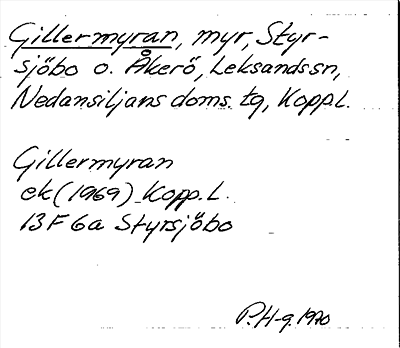 Gillermyran, myr, Styr-
sjöbo o. Åkerö, Leksands sn,
Nedansiljans doms. tg, Kopp.l.
Gillermyran
ek (1969) Kopp. L.
13F 6a Styrsjöbo
P.H-g. 1970